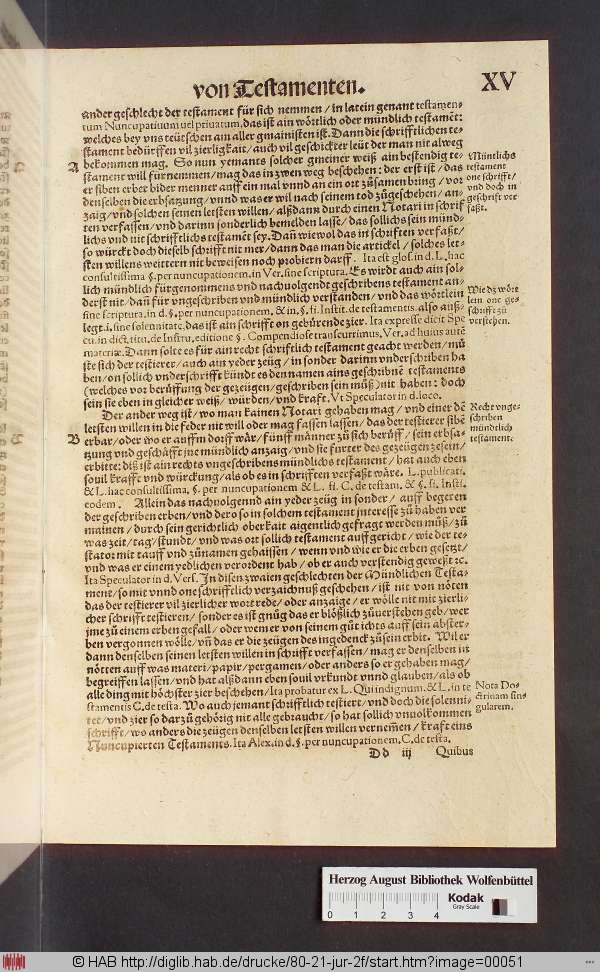 von Testamenten.
XV
ander geschlecht der testament für sich nemmen / in latein genant testamen-
tum Nuncupatiuum uel priuatum, das ist ain wörtlich oder mündlich testamēt:
welches bey vns teütschen am aller gmainisten ist. Dann die schrifftlichen te-
stament bedürffen vil zierligkait / auch vil geschickter leüt der man nit alweg
bekommen mag. So nun yemants solcher gmeiner weiß ain bestendig te-
A
stament will fürnemmen / mag das in zwen weg beschehen: der erst ist / das
er siben erber bider menner auff ein mal vnnd an ein ort zůsamen bring / vor
denselben die erbsatzung / vnnd was er wil nach seinem tod zůgeschehen / an-
zaig / vnd solchen seinen letsten willen / alßdann durch einen Notari in schrif
ten verfassen / vnd darinn sonderlich bemelden lasse / das sollichs sein münd-
lichs vnd nit schrifftlichs testamēt sey. Dan wiewol das in schriften verfaßt /
so würckt doch dieselb schrifft nit mer / dann das man die artickel / solches let-
sten willens weittern nit beweisen noch probiern darff. Ita est glos. in d. L. hac
consultissima §. per nuncupationem, in Ver. sine scriptura. Es wirdt auch ain sol-
lich mündlich fürgenommens vnd nachuolgendt geschribens testament an-
derst nit / dañ für vngeschriben vnd mündlich verstanden / vnd das wörtlein
sine scriptura, in d. §. per nuncupationem, & in. §. fi. Instit. de testamentis. also auß-
legt. i. sine solennitate, das ist ain schrifft on gebürende zier. Ita expresse dicit Spe
cu. in dict. titu. de Instru. editione §. Compendiose transcurrimus. Ver. ad huius autē
materiæ. Dann solte es für ain recht schriftlich testament geacht werden / mů
ste sich der testierer / auch ain yeder zeüg / in sonder darinn vnderschriben ha
ben / on sollich vnderschrifft kündt es den namen ains geschribnē testaments
(welches vor berüffung der gezeügen / geschriben sein můß) nit haben: doch
sein sie eben in gleicher weiß / würden / vnd kraft. Vt Speculator in d. loco.
Müntlichs
testament
one schrifft /
vnd doch in
geschrift ver
faßt.
Wie dz wört
lein one ge-
schrifft zů
verstehen.
Der ander weg ist / wo man kainen Notari gehaben mag / vnd einer dē
letsten willen in die feder nit will oder mag fassen lassen / das der testierer sibē
B
erbar / oder wo er auffm dorff wär / fünff männer zů sich berüff / sein erbsa-
tzung vnd geschäfft jne mündlich anzaig / vnd sie furter des gezeügen zesein /
erbitte: diß ist ain rechts vngeschribens mündlichs testament / hat auch eben
souil krafft vnd würckung / als ob es in schrifften verfaßt wäre. L. publicati.
& L. hac consultissima, §. per nuncupationem & L. fi. C. de testam. & §. fi. Insti.
eodem. Allein das nachuolgennd ain yeder zeüg in sonder / auff begeren
der geschriben erben / vnd der so in solchem testament interesse zů haben ver
mainen / durch sein gerichtlich oberkait aigentlich gefragt werden můß / zů
was zeit / tag / stundt / vnd was ort sollich testament auffgericht / wie der te-
stator mit tauff vnd zůnamen gehaissen / wenn vnd wie er die erben gesetzt /
vnd was er einem yedlichen verordent hab / ob er auch verstendig geweßt ꝛc.
Ita Speculator in d. Vers. In disen zwaien geschlechten der Mündlichen Testa-
ment / so mit vnnd one schrifftlich verzaichnuß geschehen / ist nit von nöten
das der testierer vil zierlicher wort rede / oder anzaige / er wölle nit mit zierli-
cher schrifft testieren / sonder es ist gnůg das er blößlich zůuerstehen geb / wer
jme zů einem erben gefall / oder wem er von seinem gůt ichts auff sein abster-
ben vergonnen wölle / vñ das er die zeügen des ingedenck zůsein erbit. Wil er
dann denselben seinen letsten willen in schrifft verfassen / mag er denselben in
nötten auff was materi / papir / pergamen / oder anders so er gehaben mag /
begreiffen lassen / vnd hat alßdann eben souil vrkundt vnnd glauben / als ob
alle ding mit höchster zier beschehen / Ita probatur ex L. Qui indignum. & L. in te
stamentis C. de testa. Wo auch jemant schrifftlich testiert / vnd doch die solenni-
tet / vnd zier so darzů gehörig nit alle gebraucht / so hat sollich vnuolkommen
schrifft / wo anders die zeügen denselben letsten willen vernem̃en / kraft eins
Nuncupierten Testaments. Ita Alex. in d. §. per nuncupationem. C. de testa.
Recht vnge-
schriben
mündtlich
testament.
Nota Do-
ctrinam sin-
gularem.
Dd iij Quibus
Herzog August Bibliothek Wolfenbüttel
0 1 2 3 4
Kodak
Gray Scale
© HAB http://diglib.hab.de/drucke/80-21-jur-2f/start.htm?image=00051